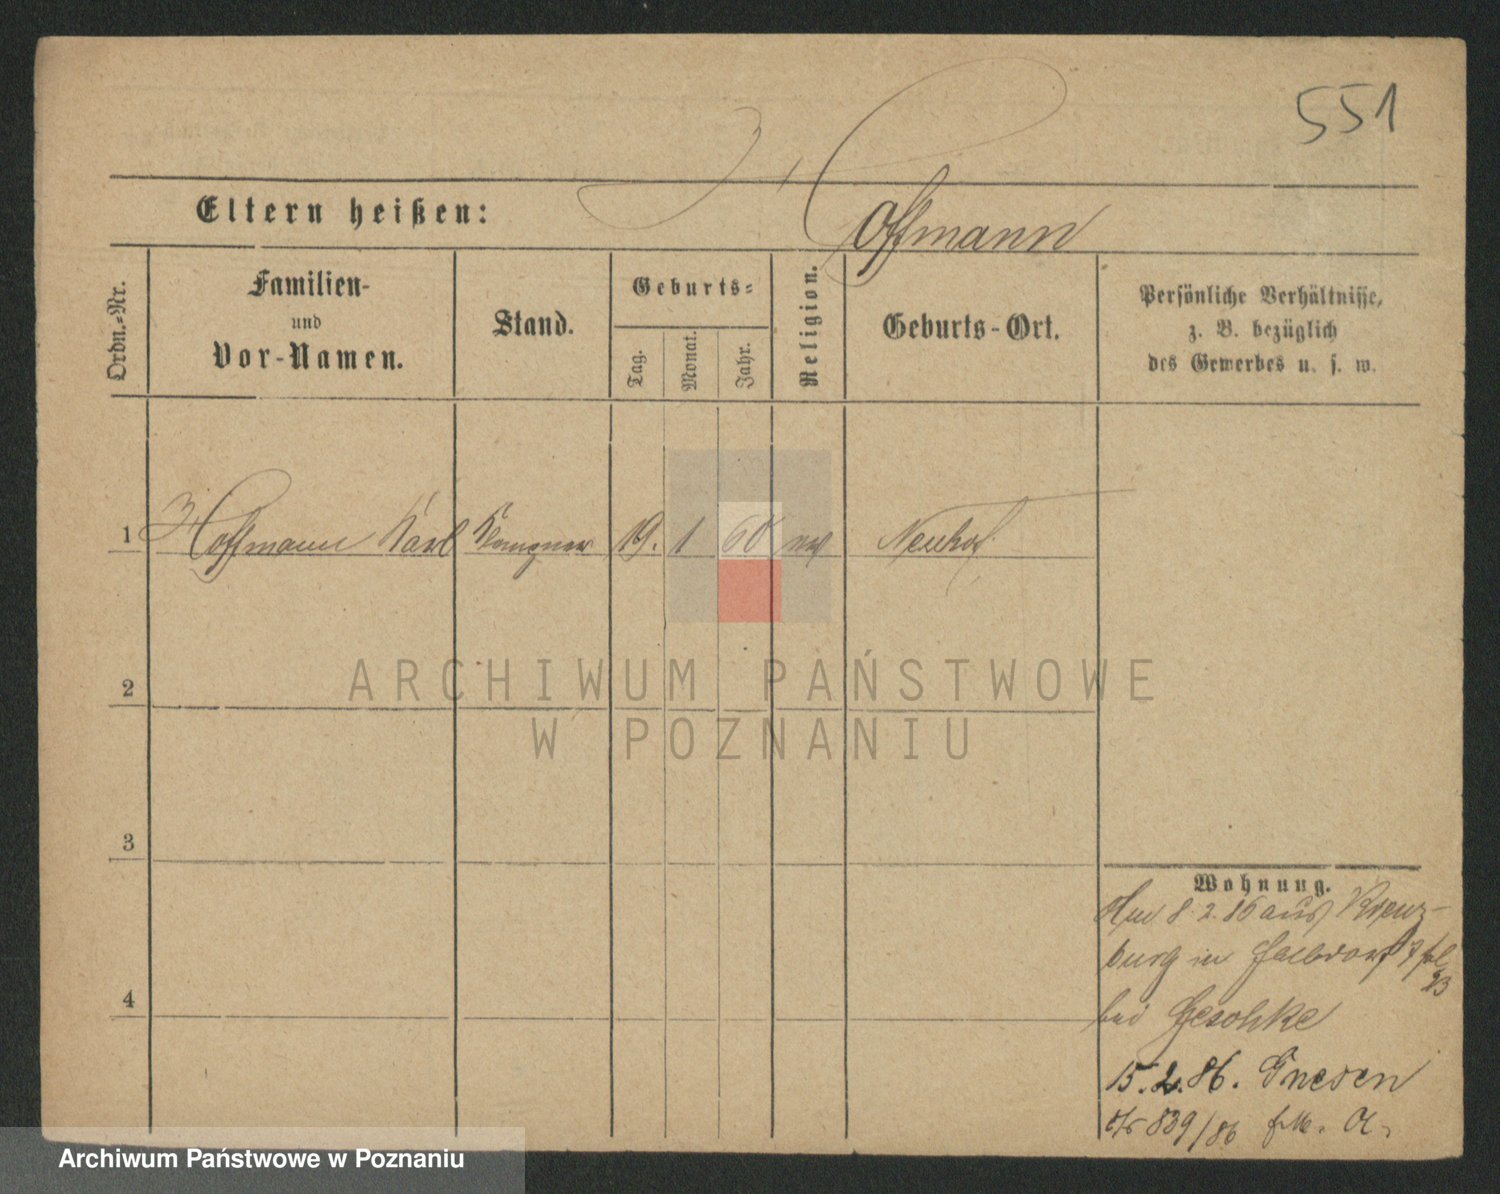 551
Eltern heißen: Hoffmann
Ordn.-Nr.
Familien-
und
Vor-Namen.
Stand.
Geburts-
Tag.
Monat.
Jahr.
Religion.
Geburts-Ort.
Persönliche Verhältnisse,
z. B. bezüglich
des Gewerbes u. s. w.
1 Hoffmann Karl 19. 1 60 Neuhof
2
3
4
ARCHIWUM PAŃSTWOWE
W POZNANIU
Wohnung.
8. 2. 86 aus Kreuz-
burg in
bei Geschke
15. 2. 86. Gnesen
839/86
Archiwum Państwowe w Poznaniu